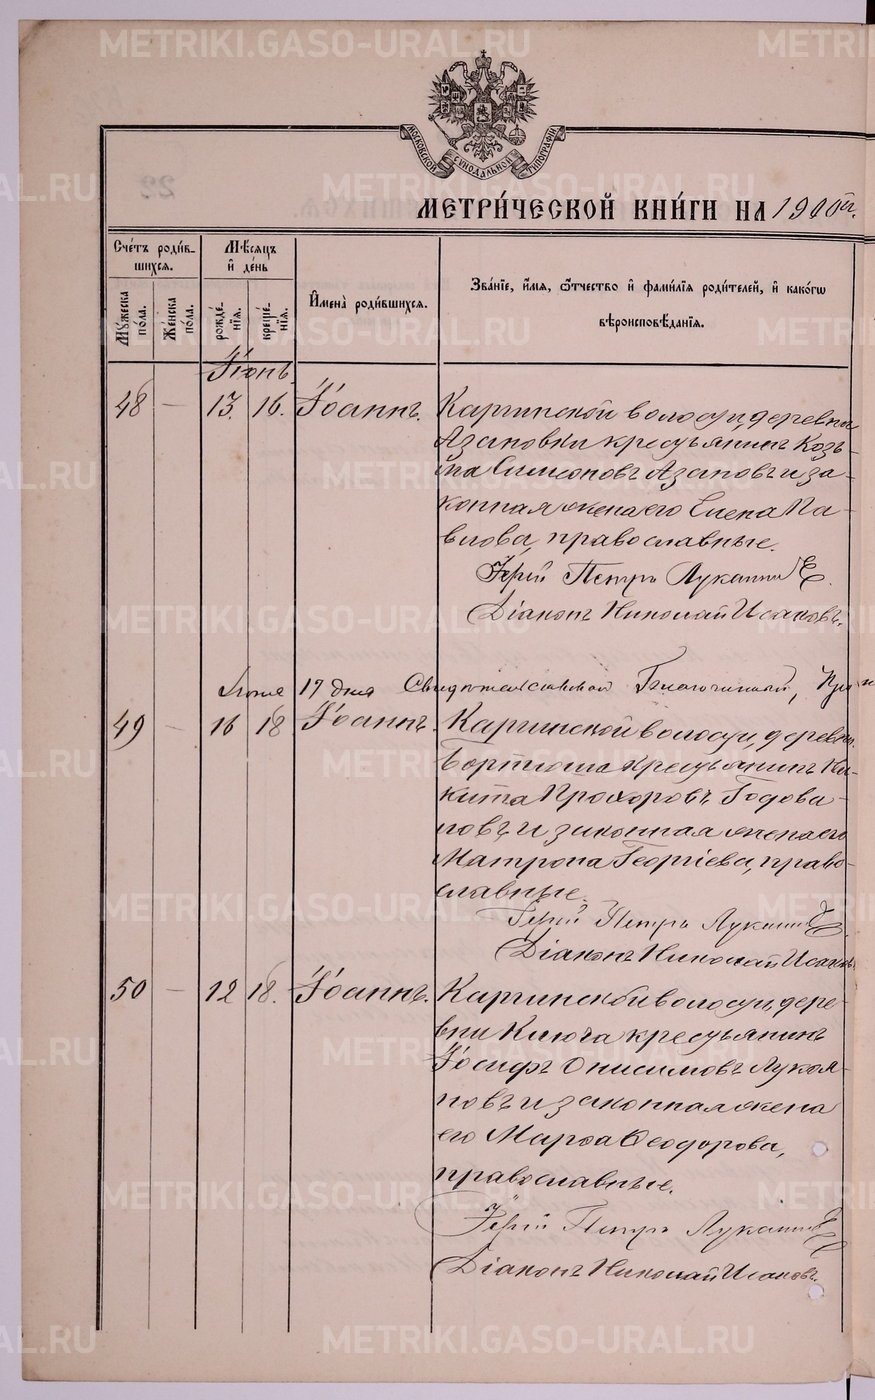 METRIKI.GASO-URAL.RU
МОСКОВСКОЙ СѴНОДАЛЬНОЙ ТИПОГРАФІИ
МЕТРИ́ЧЕСКОЙ КНИ́ГИ НА 1900й г.
Сче́тъ роди́в-
шихся.
Мꙋ́жеска по́ла.
Же́нска по́ла.
Мѣ́сяцъ
и҆ де́нь
рожде́-
нїѧ.
креще́-
нїѧ.
И҆мена̀ роди́вшихсѧ.
Зва́нїе, и҆́мѧ, ѻ҆́тчество и҆ фами́лїѧ роди́телей, и҆ како́гѡ
вѣроисповѣ́данїѧ.
Іюнь.
48 — 13. 16. Іоаннъ.
Каргинской волости, деревни
Азановки крестьянинъ Козь-
ма Симеоновъ Азановъ и за-
конная жена его Елена Па-
влова, православные.
Іерей Петръ Лукан
Діаконъ Николай Исаковъ.
Іюня 17 дня Свидѣтельствовалъ Благочинный,
49 — 16 18 Іоаннъ.
Каргинской волости, деревни
Бортюша крестьянинъ Ни-
кита Прохоровъ Годова-
ловъ и законная жена его
Матрона Георгіева, право-
славные.
Іерей Петръ Лукан
Діаконъ Николай Исаковъ.
50 — 12 18. Іоаннъ.
Каргинской волости, дере-
вни Ключа крестьянинъ
Іосифъ Онисимовъ Лукоя-
новъ и законная жена
его Марѳа Ѳеодорова,
православные.
Іерей Петръ Лукан
Діаконъ Николай Исаковъ.